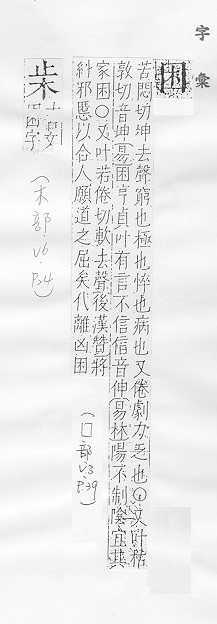 字彙
困
苦悶切坤去聲窮也極也悴也病也又倦劇力乏也〇又叶
敦切音坤易困亨貞叶有言不信信音伸易林陽不制陰宜其
家困〇又叶若倦切歉去聲後漢贊將
糾邪慝以合人願道之屈矣代離凶困
(口部 V3 P39)
(木部 V6 P34)